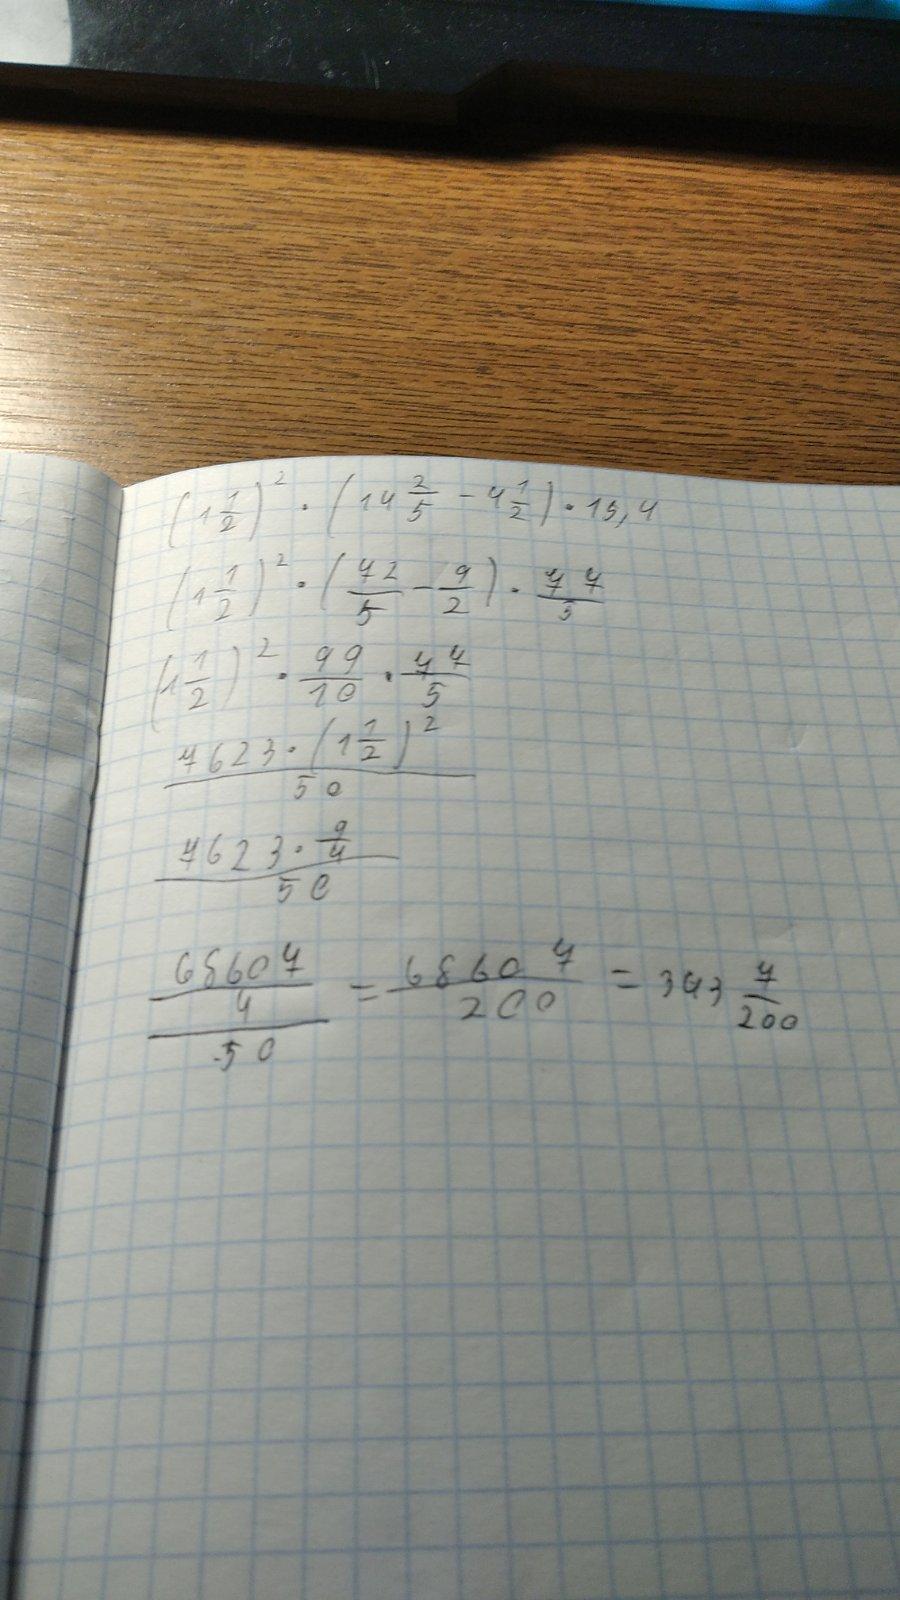 (1 1/2)² · (14 2/5 - 4 1/2) · 15,4
(1 1/2)² · (72/5 - 9/2) · 77/5
(1 1/2)² · 99/10 · 77/5
7623 · (1 1/2)² / 50
7623 · 9/4 / 50
68607/4 / 50 = 68607/200 = 343 7/200